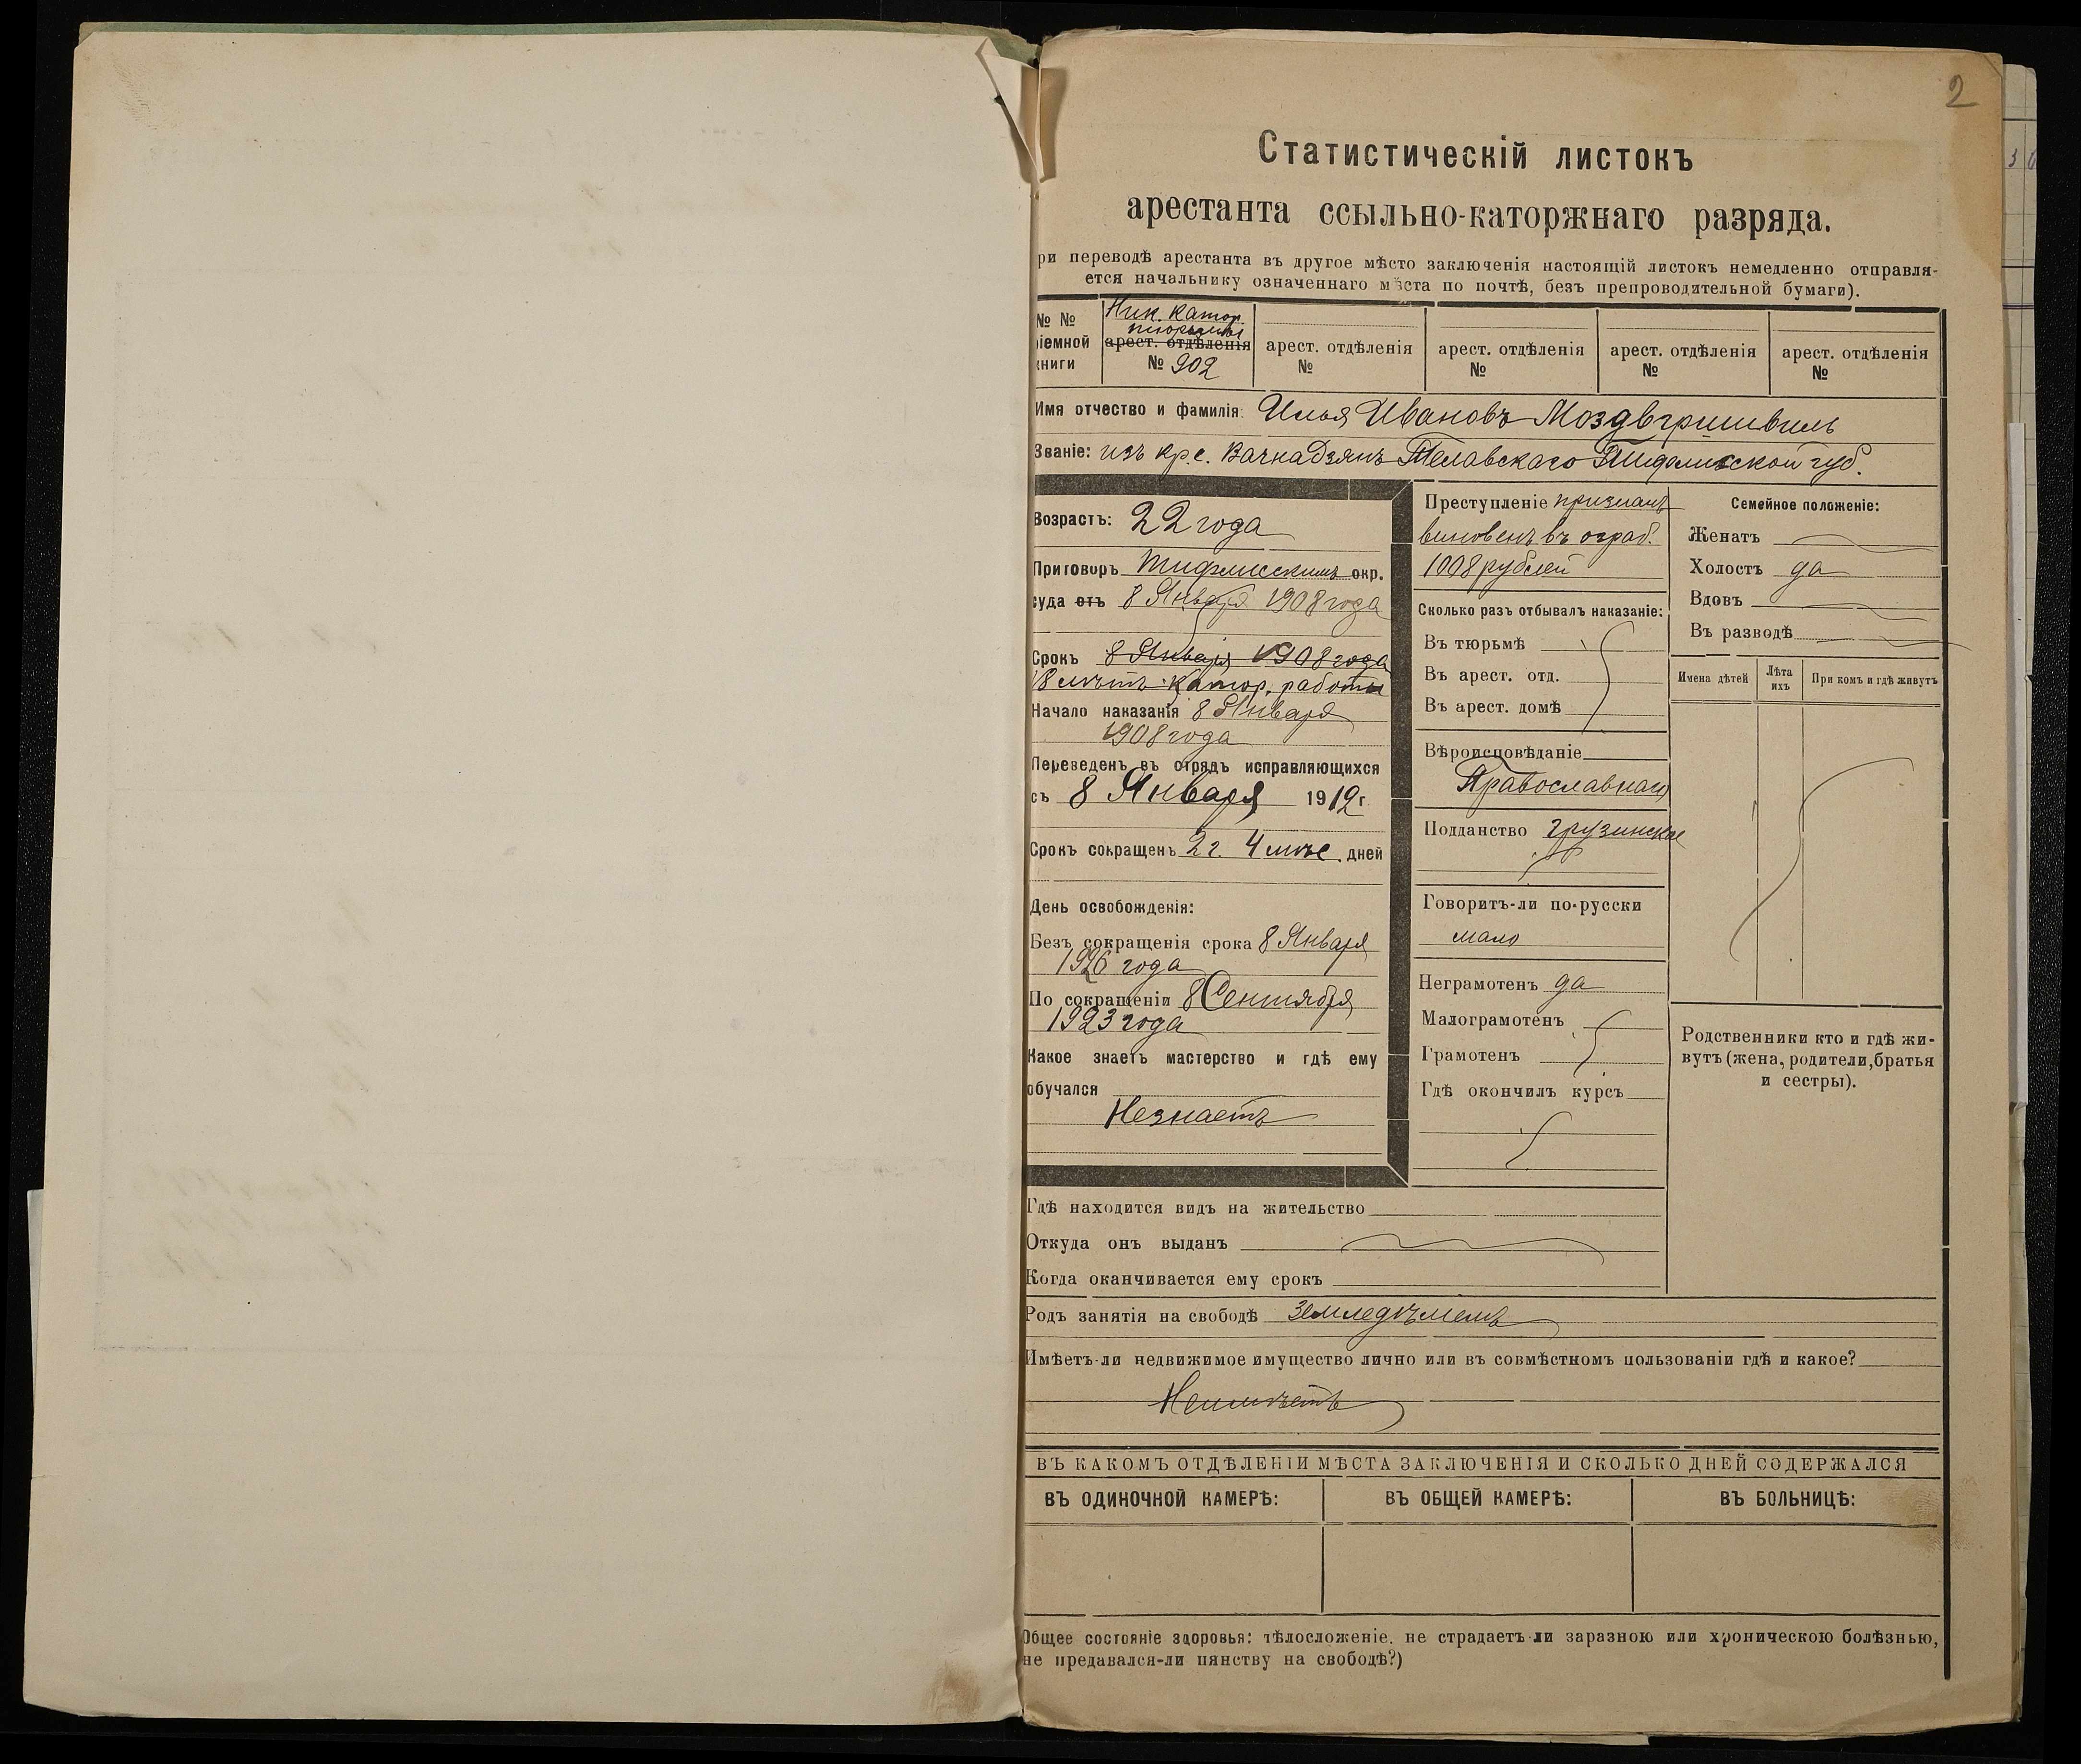 2
Статистическій листокъ
арестанта ссыльно-каторжнаго разряда.
ри переводѣ арестанта въ другое мѣсто заключенія настоящій листокъ немедленно отправля-
ется начальнику означеннаго мѣста по почтѣ, безъ препроводительной бумаги).
№ №
ріемной
книги
Ник. катор.
тюрьмы
арест. отдѣленія
№ 902
арест. отдѣленія
№
арест. отдѣленія
№
арест. отдѣленія
№
арест. отдѣленія
№
Имя отчество и фамилія: Илья Ивановъ Моздвгришвиль
Званіе: изъ кр. с. Вачнадзянъ Телавскаго Тифлисской губ.
Возрастъ: 22 года
Приговоръ Тифлисскимъ окр.
суда отъ 8 Января 1908 года
Срокъ 8 Января 1908 года
18 лѣтъ катор. работы
Начало наказанія 8 Января
1908 года
Переведенъ въ отрядъ исправляющихся
съ 8 Января 1912 г
Срокъ сокращенъ 2 г. 4 мѣс. дней
День освобожденія:
Безъ сокращенія срока 8 Января
1926 года
По сокращеніи 8 Сентября
1923 года
Какое знаетъ мастерство и гдѣ ему
обучался
Незнаетъ
Преступленіе признанъ
виновенъ въ ограб.
1008 рублей
Сколько разъ отбывалъ наказаніе:
Въ тюрьмѣ
Въ арест. отд.
Въ арест. домѣ
Вѣроисповѣданіе
Православнаго
Подданство грузинское
Говоритъ-ли по-русски
мало
Неграмотенъ да
Малограмотенъ
Грамотенъ
Гдѣ окончилъ курсъ
Семейное положеніе:
Женатъ
Холостъ да
Вдовъ
Въ разводѣ
Имена дѣтей
Лѣта
ихъ
При комъ и гдѣ живутъ
Родственники кто и гдѣ жи-
вутъ (жена, родители, братья
и сестры).
Гдѣ находится видъ на жительство
Откуда онъ выданъ
Когда оканчивается ему срокъ
Родъ занятія на свободѣ земледѣлецъ
Имѣетъ-ли недвижимое имущество лично или въ совмѣстномъ пользованіи гдѣ и какое?
Неимѣетъ
ВЪ КАКОМЪ ОТДѢЛЕНІИ МѢСТА ЗАКЛЮЧЕНІЯ И СКОЛЬКО ДНЕЙ СОДЕРЖАЛСЯ
ВЪ ОДИНОЧНОЙ КАМЕРѢ:
ВЪ ОБЩЕЙ КАМЕРѢ:
ВЪ БОЛЬНИЦѢ:
Общее состояніе здоровья: тѣлосложеніе, не страдаетъ-ли заразною или хроническою болѣзнью,
не предавался-ли пянству на свободѣ?)